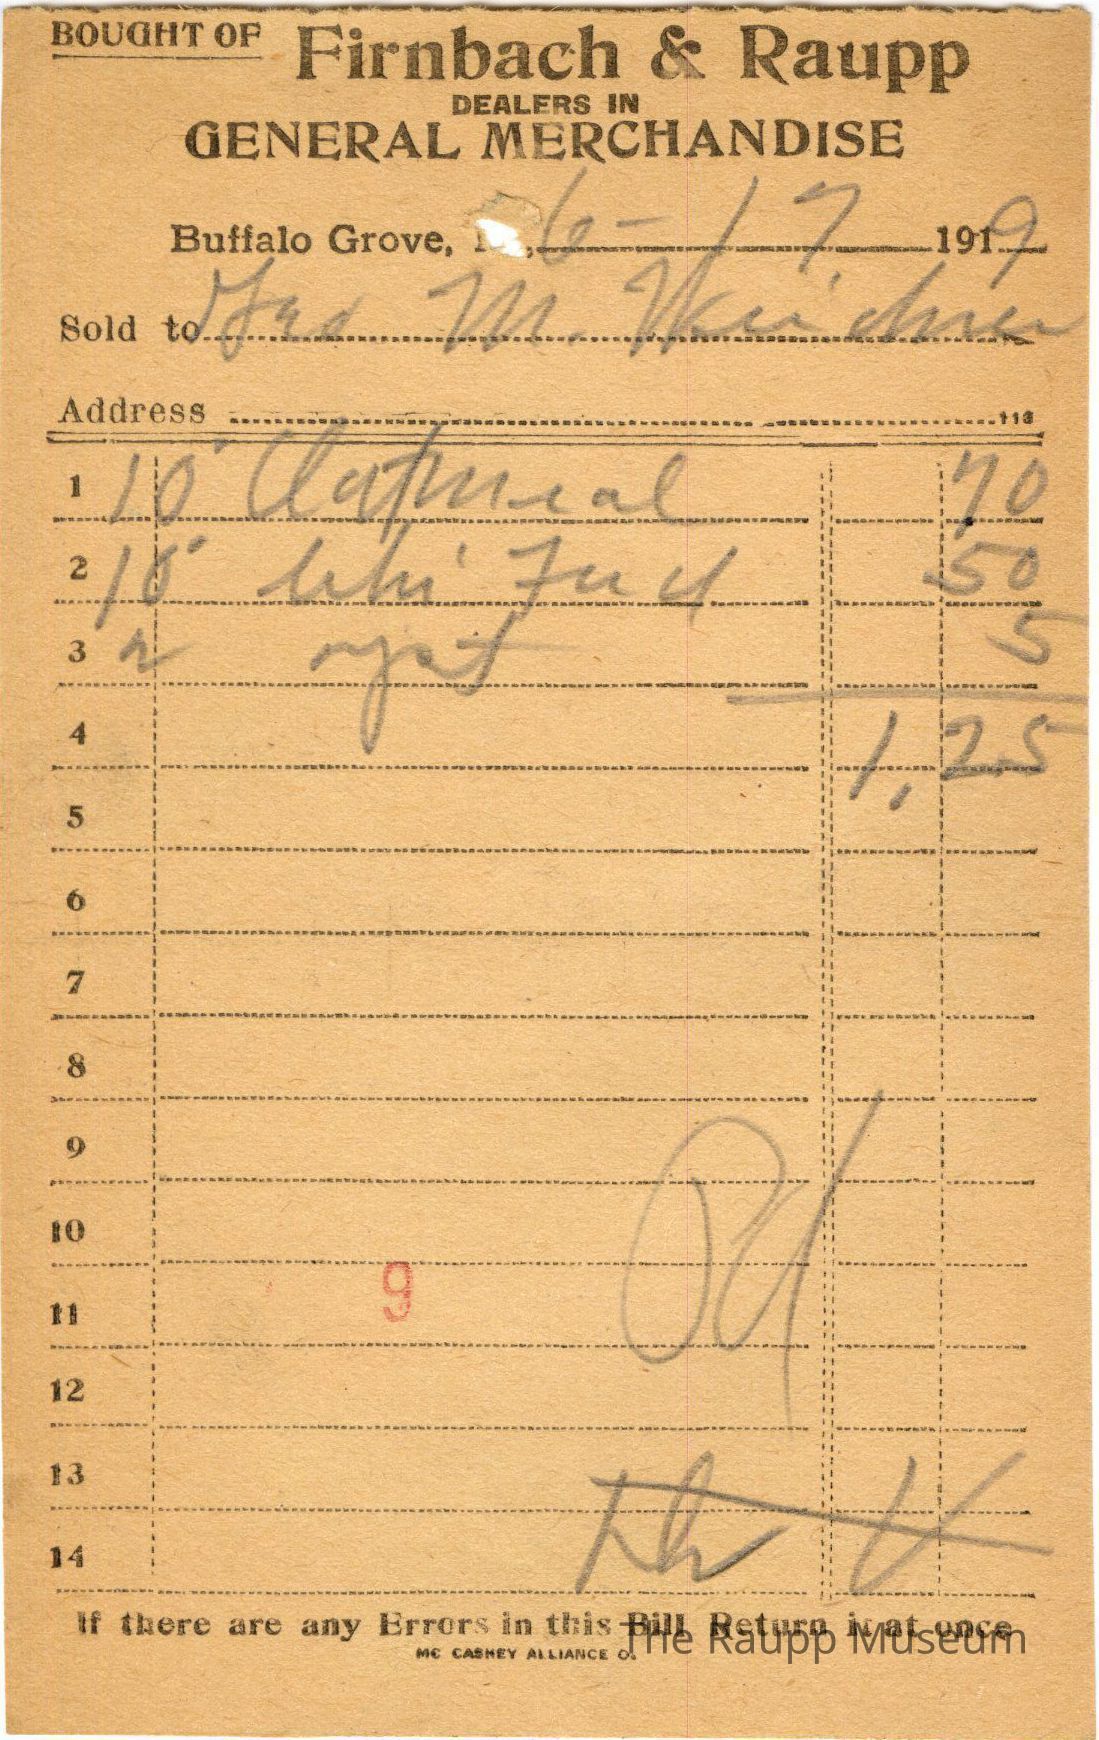 BOUGHT OF Firnbach & Raupp
DEALERS IN
GENERAL MERCHANDISE
Buffalo Grove, 6-17 1919
Sold to Geo M.
Address 113
1 10 Oatmeal 70
2 10 50
3 2 5
4 1,25
5
6
7
8
9
10
9
11
12
13
14
If there are any Errors in this Bill Return it at once
MC CASKEY ALLIANCE O.
The Raupp Museum